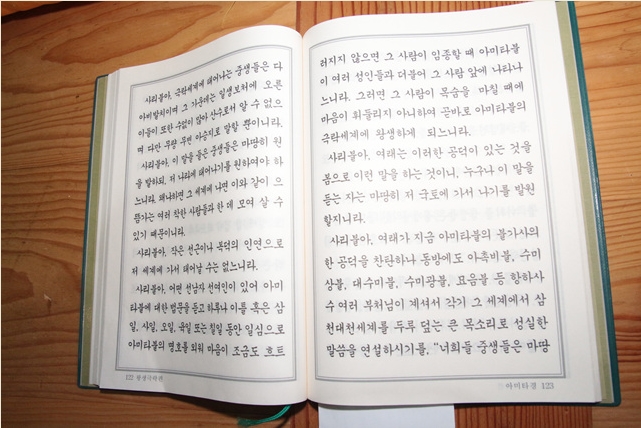 사리불아, 극락세계에 태어나는 중생들은 다
아비발치이며 그 가운데는 일생보처에 오른
이들이 또한 수없이 많아 산수로서 알 수 없으
며 다만 무량 무변 아승지로 말할 뿐이니라.
사리불아, 이 말을 들은 중생들은 마땅히 원
을 발하되, 저 나라에 태어나기를 원하여야 하
느니라. 왜냐하면 그 세계에 나면 이와 같이 으
뜸가는 여러 착한 사람들과 한 데 모여 살 수
있기 때문이니라.
사리불아, 작은 선근이나 복덕의 인연으로
저 세계에 가서 태어날 수는 없느니라.
사리불아, 어떤 선남자 선여인이 있어 아미
타불에 대한 법문을 듣고 하루나 이틀 혹은 삼
일, 사일, 오일, 육일 또는 칠일 동안 일심으로
아미타불의 명호를 외워 마음이 조금도 흐트
122 왕생극락권
러지지 않으면 그 사람이 임종할 때 아미타불
이 여러 성인들과 더불어 그 사람 앞에 나타나
느니라. 그러면 그 사람이 목숨을 마칠 때에
마음이 휘둘리지 아니하여 곧바로 아미타불의
극락세계에 왕생하게 되느니라.
사리불아, 여래는 이러한 공덕이 있는 것을
봄으로 이런 말을 하는 것이니, 누구나 이 말을
듣는 자는 마땅히 저 국토에 가서 나기를 발원
할지니라.
사리불아, 여래가 지금 아미타불의 불가사의
한 공덕을 찬탄하나 동방에도 아촉비불, 수미
상불, 대수미불, 수미광불, 묘음불 등 항하사
수 여러 부처님이 계셔서 각기 그 세계에서 삼
천대천세계를 두루 덮는 큰 목소리로 성실한
말씀을 연설하시기를, “너희들 중생들은 마땅
아미타경 123